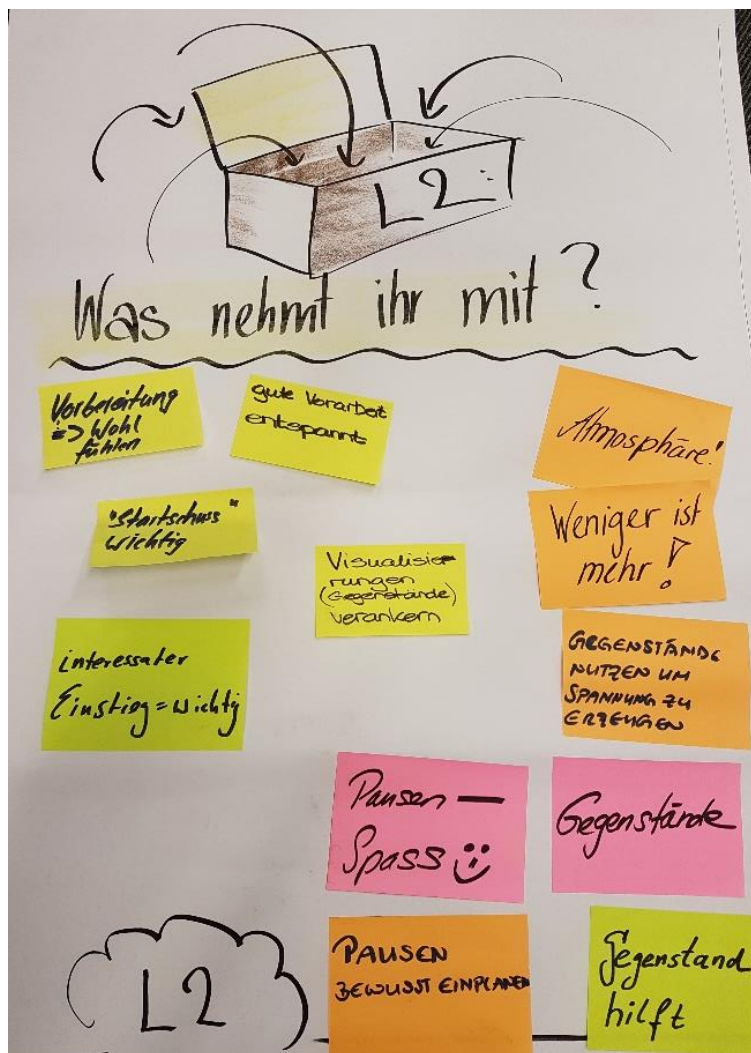 L2
Was nehmt ihr mit?
Vorbereitung
=> Wohl
fühlen
gute Vorarbeit
entspannt
Atmosphäre!
"Startschuss"
wichtig
Weniger ist
mehr!
Visualisie-
rungen
(Gegenstände)
verankern
interessater
Einstieg = wichtig
GEGENSTÄNDE
NUTZEN UM
SPANNUNG ZU
ERZEUGEN
Pausen —
Spass
Gegenstände
PAUSEN
BEWUSST EINPLANEN
Gegenstand
hilft
L2